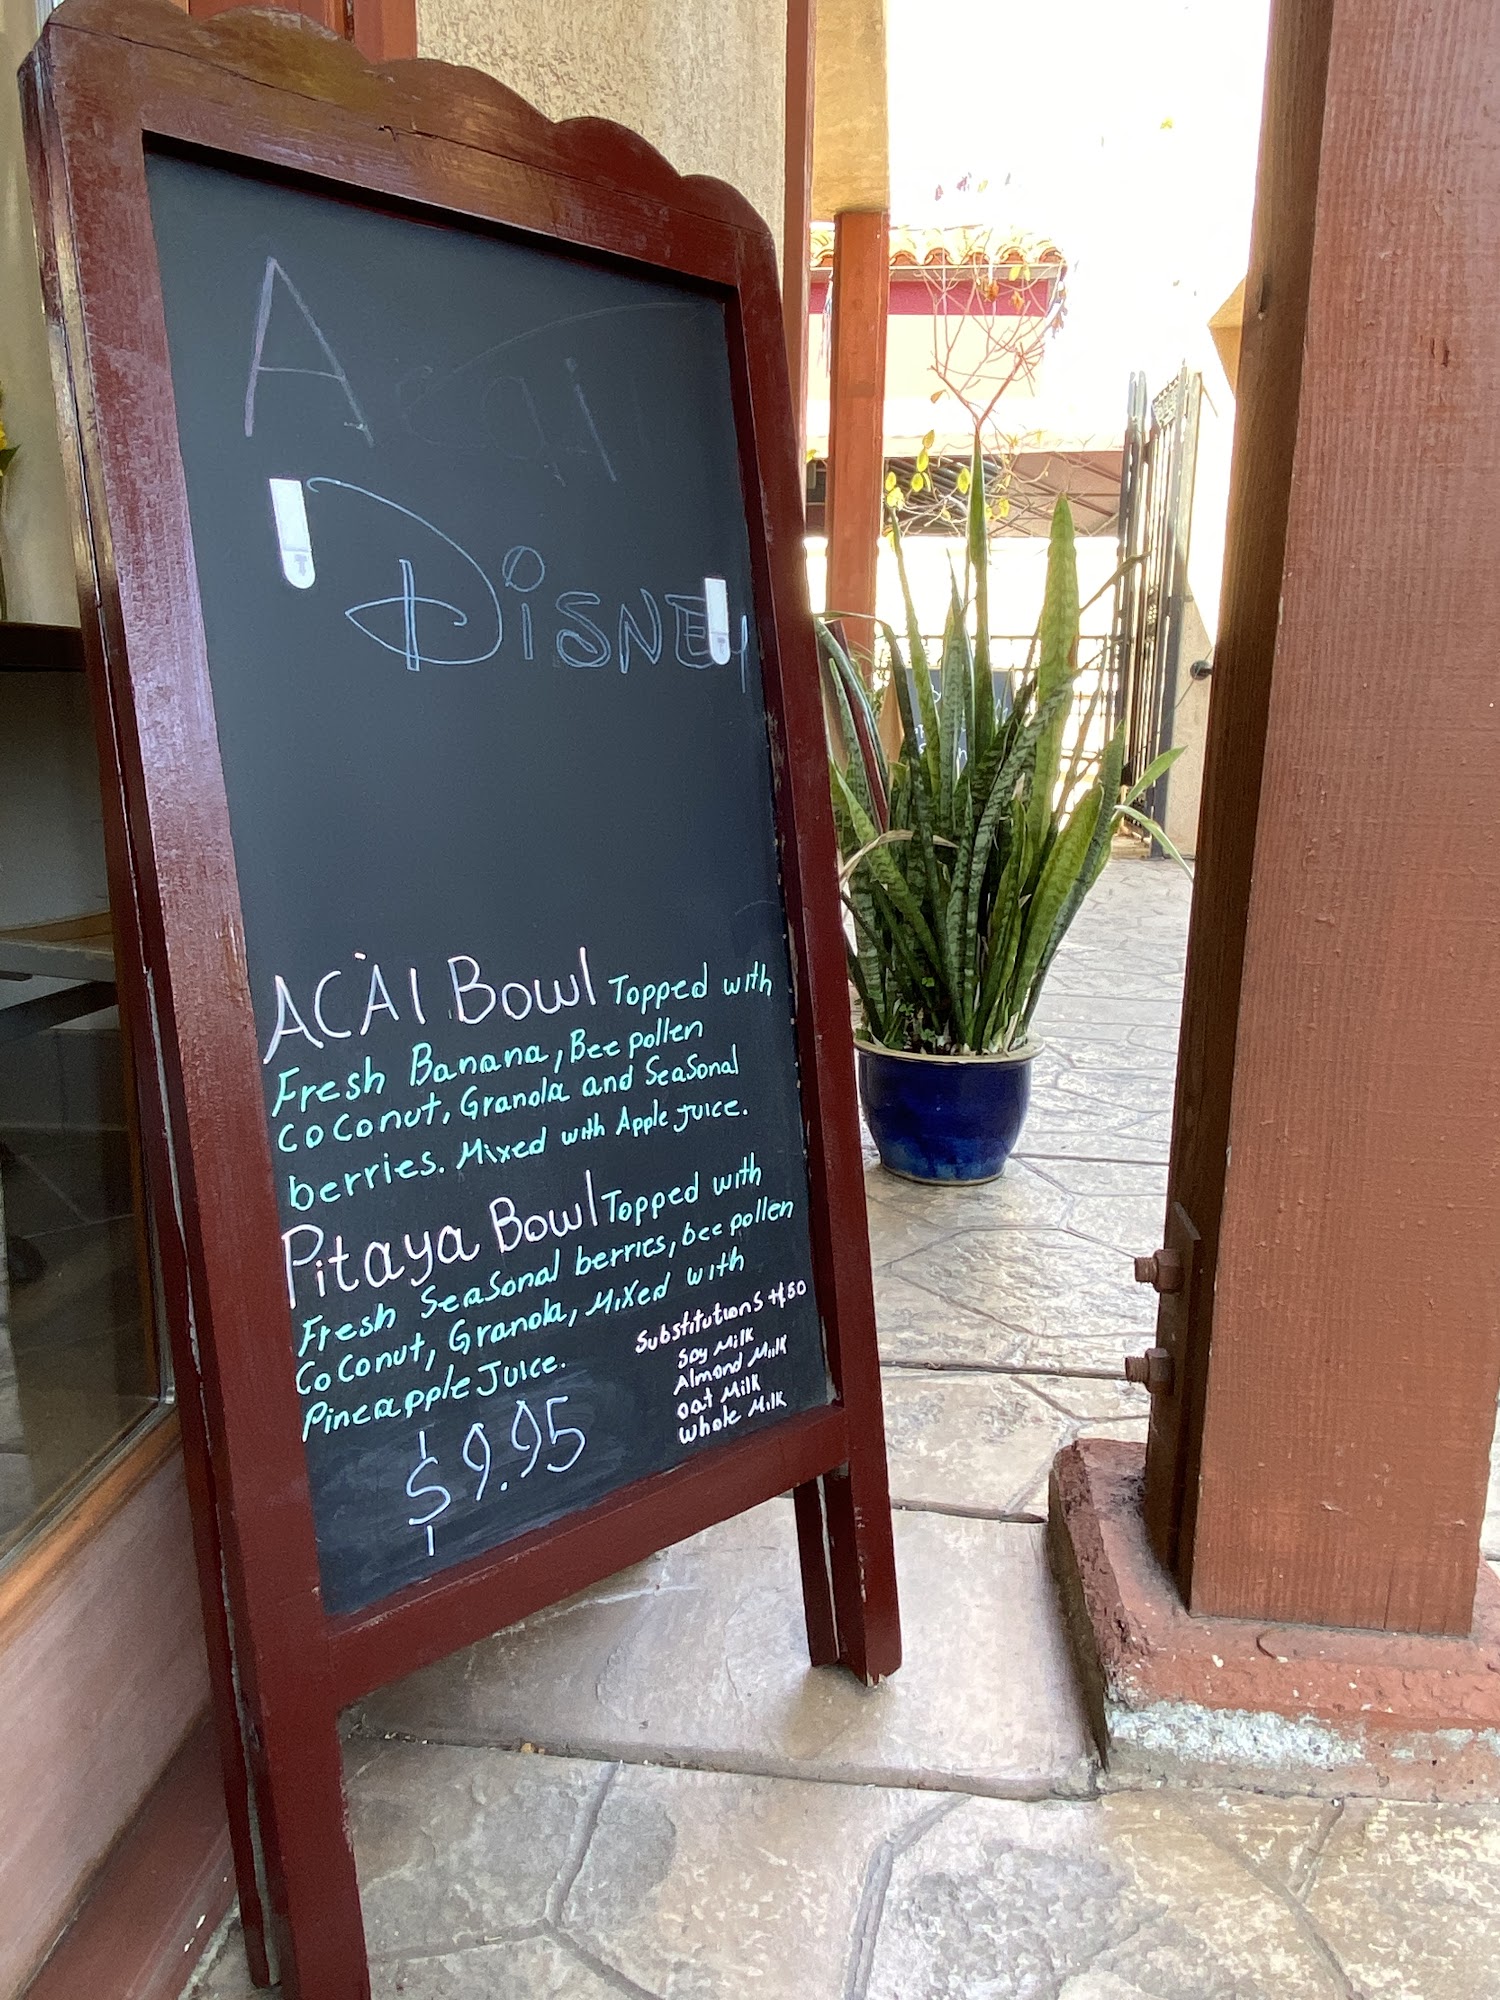 Acai
Disney
ACÀI Bowl Topped with
Fresh Banana, Bee pollen
Coconut, Granola and Seasonal
berries. Mixed with Apple juice.
Pitaya Bowl Topped with
Fresh Seasonal berries, bee pollen
Coconut, Granola, Mixed with
Pineapple Juice.
$9.95
Substitutions +$1.50
Soy Milk
Almond Milk
Oat Milk
Whole Milk